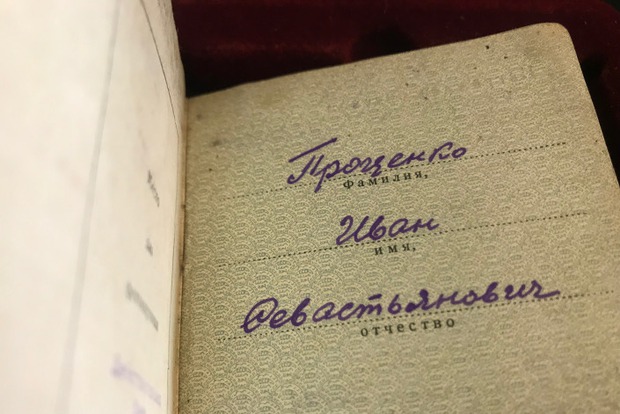 Проценко
фамилия,
Иван
имя,
Севастьянович
отчество